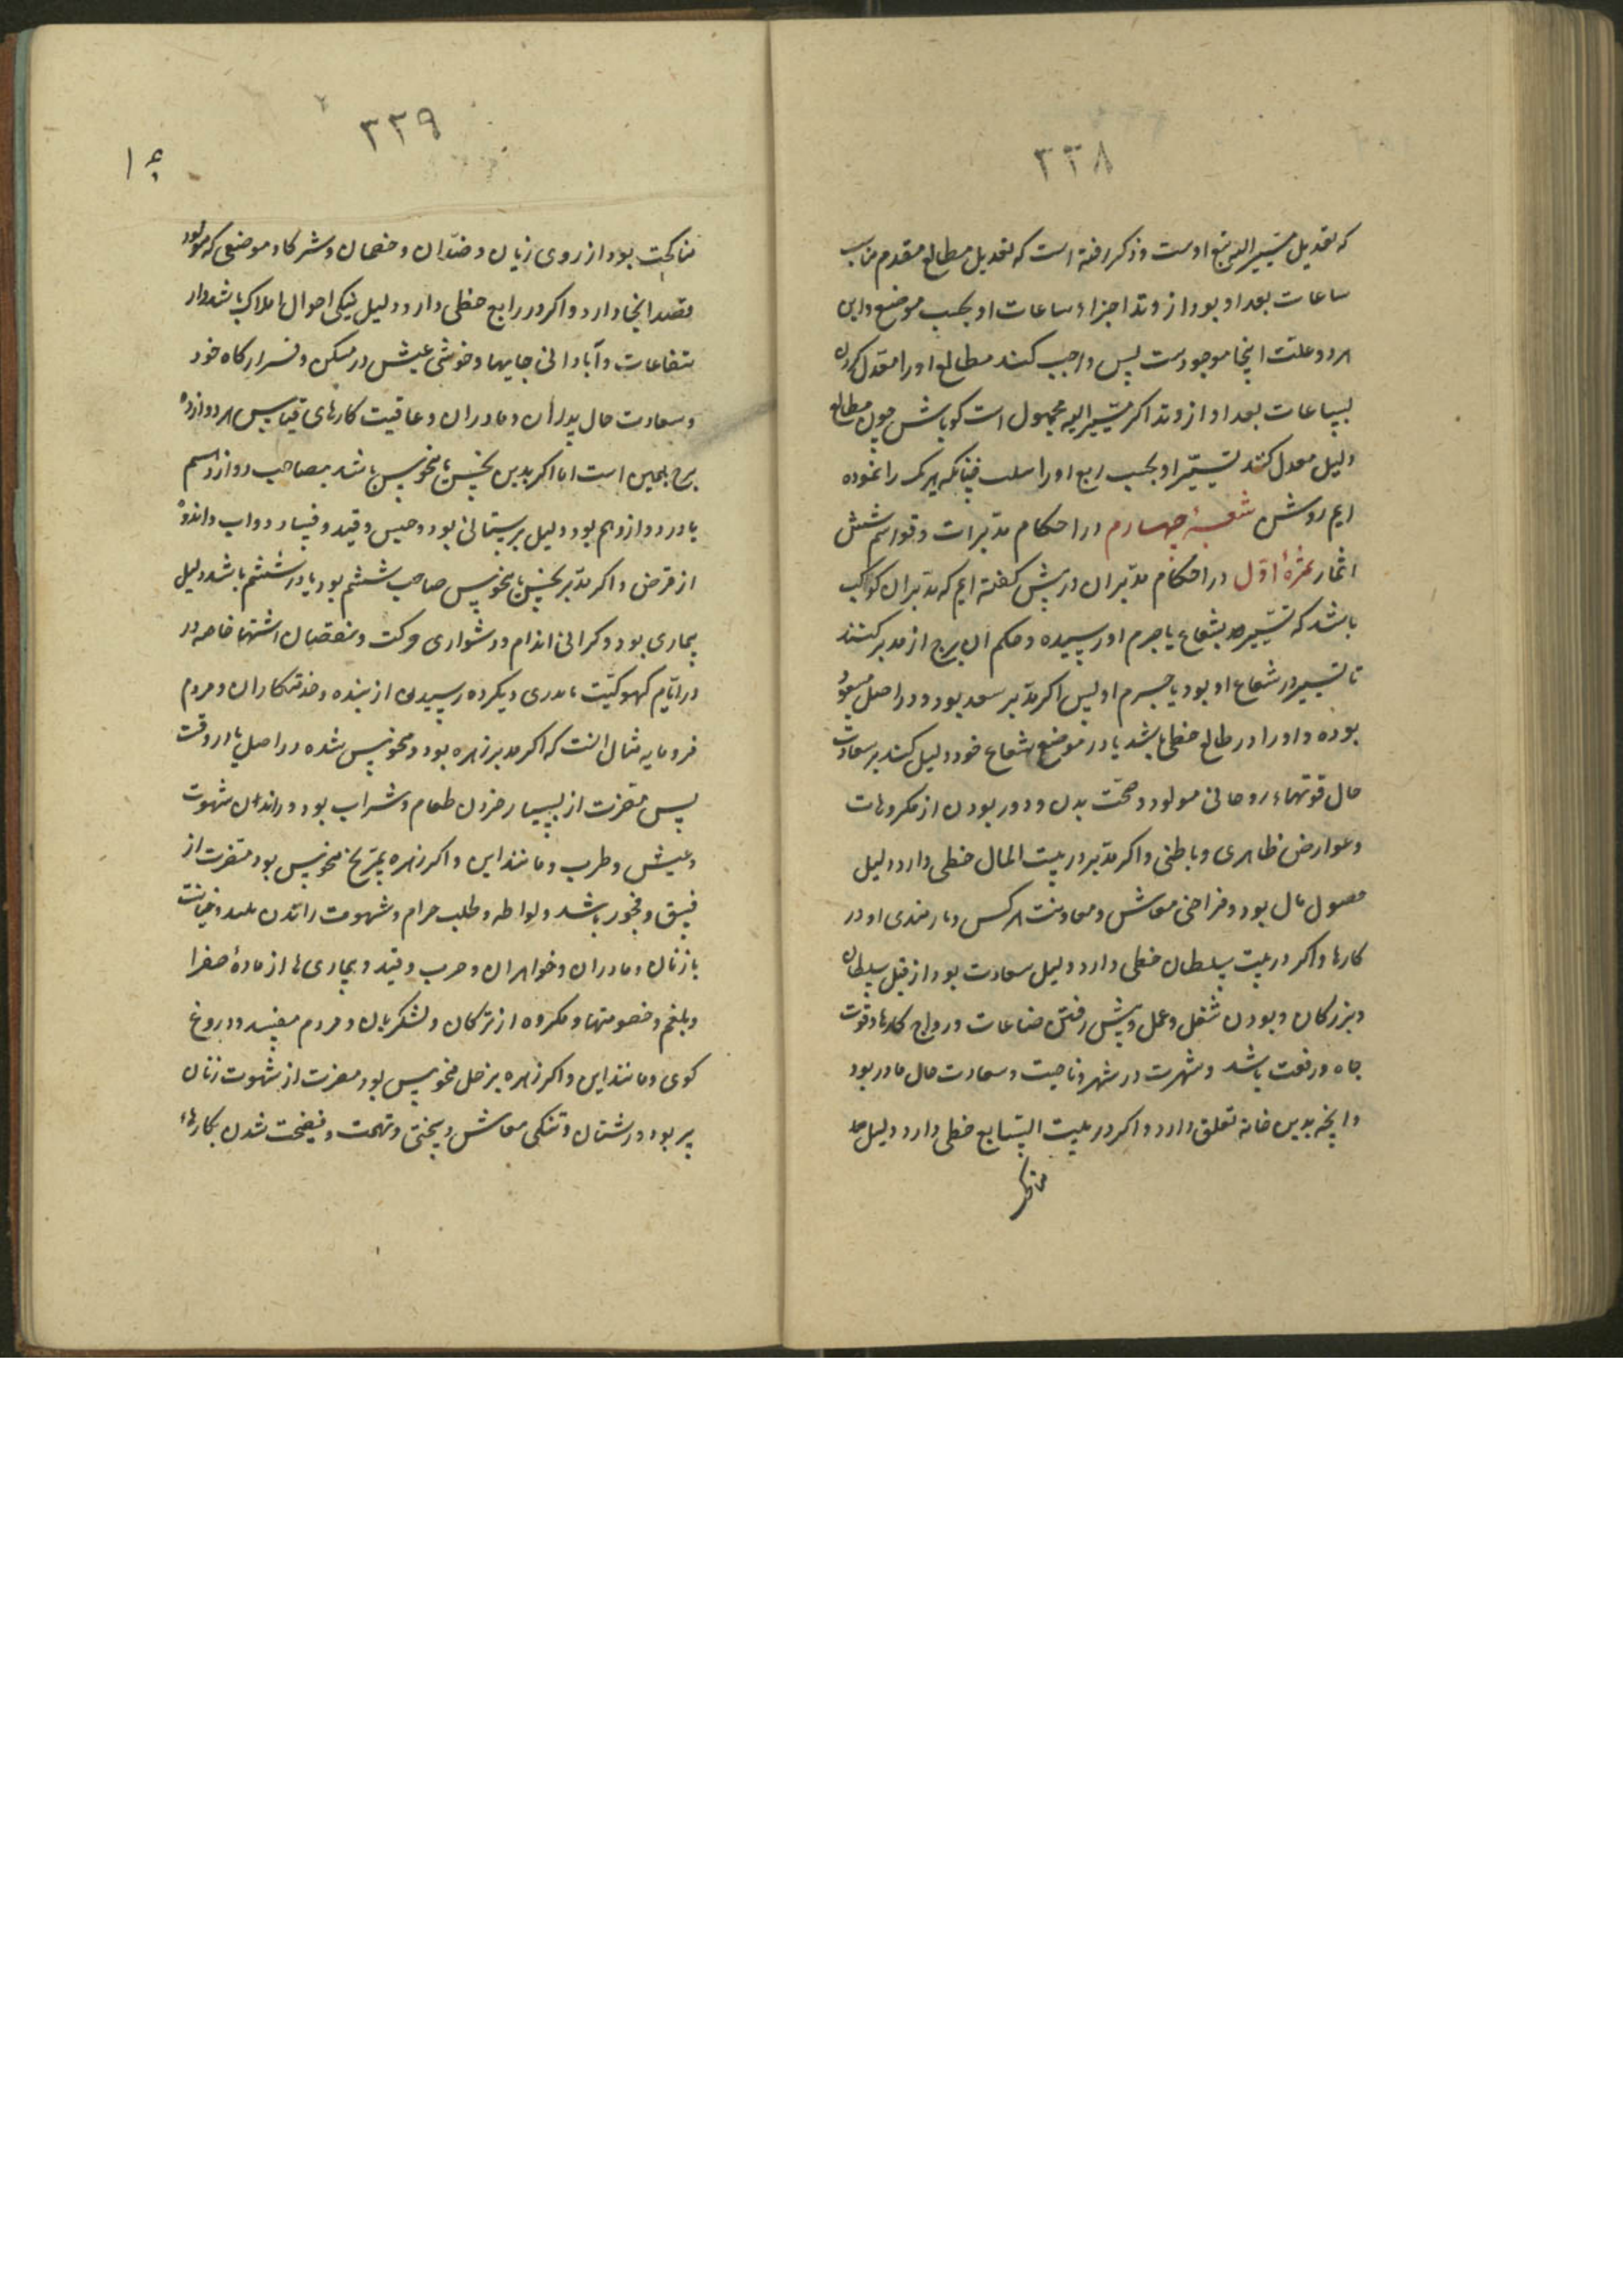 ۳۳۸
که تعدیل مسیر الیه تبع اوست و ذکر رفته است که تعدیل مطالع مقدم مناسب
ساعات بعد او بود از وتد اجزاء ساعات او بحسب موضع و این
هر دو علت اینجا موجودست پس واجب کند مطالع او را معدل کردن
بساعات بعد او از وتد اکر مسیر الیه مجهول است کو باش چون مطالع
دلیل معدل کنند تسییر او بحسب ربع او راست چنانکه هر یک را نموده
ایم روشن شعبهٔ چهارم در احکام مدبرات و قواسم شش
اثمار ثمرهٔ اول در احکام مدبران در پیش کفته ایم که مدبران کواکب
باشد که تسییر بشعاع یا جرم او رسیده و حکم آن برج از مدبر کنند
تا تسییر در شعاع او بود یا جرم او پس اکر مدبر سعد بود و در اصل مسعود
بوده و او را در طالع حظی باشد یا در موضع شعاع خود دلیل کند بر سعادت
حال قوتهاء روحانی مولود و صحت بدن و دور بودن از مکروهات
و عوارض ظاهری و باطنی و اکر مدبر در بیت المال حظی دارد دلیل
حصول مال بود و فراخی معاش و معاونت هر کس و یارمندی او در
کارها و اکر در بیت سلطان حظی دارد دلیل سعادت بود از قبل سلطان
و بزرکان و بودن شغل و عمل و پیش رفتن صناعات و رواج کارها و قوت
جاه و رفعت باشد و شهرت در شهر و ناحیت و سعادت حال مادر بود
و آنچه بدین خانه تعلق دارد و اکر در بیت السابع حظی دارد دلیل
مناکحـ
۳۳۹
مناکحت بود از روی زنان و ضدان و خصمان و شرکا و موضعی که مولود
قصد آنجا دارد و اکر در رابع حظی دارد دلیل نیکی احوال املاک باشد و از
انتفاعات و آبادانی جایها و خوشی عیش در مسکن و قرارکاه خود
و سعادت حال پدران و مادران و عاقبت کارهای قیاس هر دوازده
برج همین است اما اکر بدین نحس یا منحوس باشد بصاحب دوازدهم
یا در دوازدهم بود دلیل بر پستانی بود و حبس و قید و فساد دواب و اندوه
از قرض و اکر مدبر نحس یا منحوس صاحب ششم بود یا در ششم باشد دلیل
بیماری بود و کرانی اندام و دشواری حرکت و نقصان اشتها خاصه در
در ایام کهولیت و مکروه رسیدن از بنده و خدمتکاران و مردم
فرومایه مثال آنست که اکر مدبر زهره بود و منحوس شده در اصل یا در وقت
پس مضرت از بسیار خوردن طعام و شراب بود و راندن شهوت
و عیش و طرب و مانند این و اکر زهره بمریخ منحوس بود مضرت از
فسق و فجور باشد و لواطه و طلب حرام و شهوت راندن و خیانت
با زنان و مادران و خواهران و حرب و قید و بیماری ها از مادهٔ صفرا
و بلغم و خصومتها و مکروه از ترکان و لشکریان و مردم مفسد و دروغ
کوی و مانند این و اکر زهره بزحل منحوس بود مضرت از شهوت زنان
پیر بود و زشتان و تنکی معاش و سختی و تهمت و فضیحت شدن بکارهاء